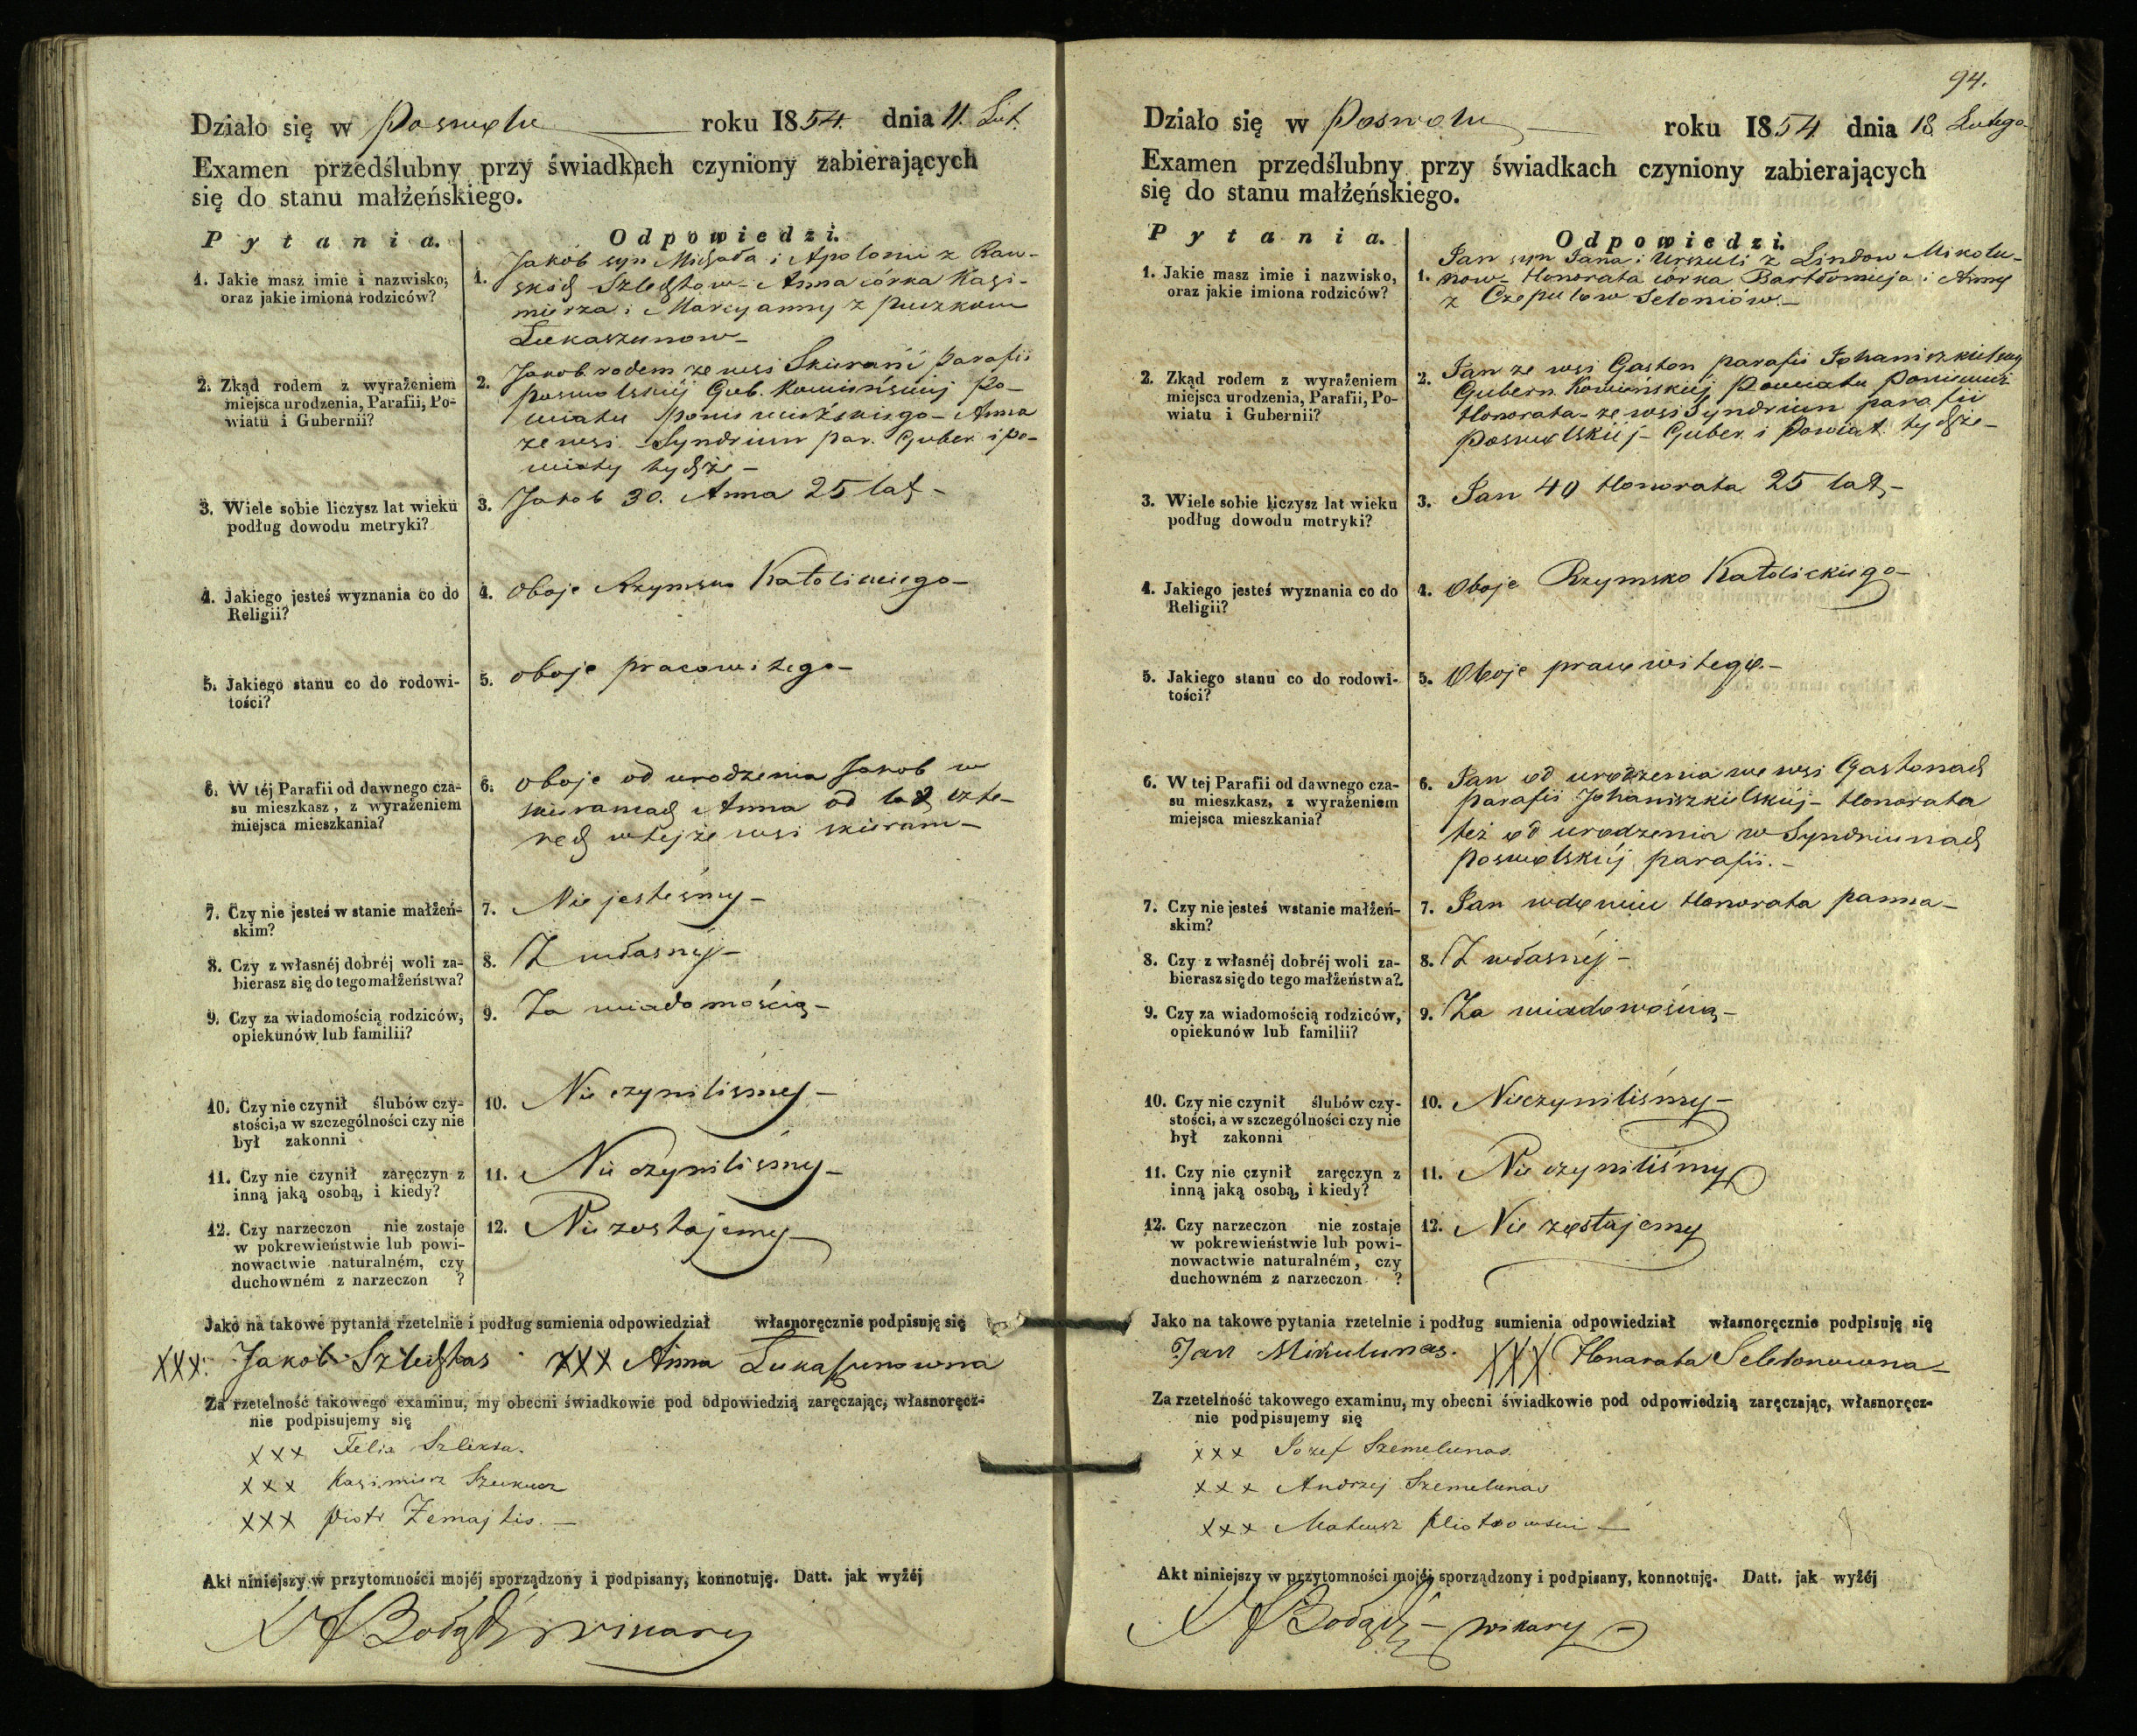 Działo się w Poswolu roku 1854. dnia 11. Lut.
Examen przedślubny przy świadkach czyniony zabierających
się do stanu małżeńskiego.
Pytania.
Odpowiedzi.
1. Jakie masz imie i nazwisko,
oraz jakie imiona rodziców?
1. Jakób syn Michała i Apolonii z Raw-
skich Szlechtow- Anna córka Kazi-
mierza i Marcyanny z Puszkow
Łukaszunow-
2. Zkąd rodem z wyrażeniem
miejsca urodzenia, Parafii, Po-
wiatu i Gubernii?
2. Jakob rodem ze wsi Skurani parafii
poswolskiéj Gub. Kowieńskiéj po-
wiatu poniewieżskiego- Anna
ze wsi Syndriun par. Guber. i po-
wiaty tychże-
3. Wiele sobie liczysz lat wieku
podług dowodu metryki?
3. Jakob 30. Anna 25 lat,-
4. Jakiego jesteś wyznania co do
Religii?
4. Oboje Rzymsko Katolickiego-
5. Jakiego stanu co do rodowi-
tości?
5. oboje pracowitego-
6. W téj Parafii od dawnego cza-
su mieszkasz, z wyrażeniem
miejsca mieszkania?
6. oboje od urodzenia Jakob w
skuraniach Anna od lat czte-
rech w tejże wsi
7. Czy nie jesteś w stanie małżeń-
skim?
7. Nie jesteśmy-
8. Czy z własnéj dobréj woli za-
bierasz się do tego małżeństwa?
8. Z własnéj-
9. Czy za wiadomością rodziców,
opiekunów lub familii?
9. Za wiadomością-
10. Czy nie czynił ślubów czy-
stości, a w szczególności czy nie
był zakonni
10. Nie czyniliśmy-
11. Czy nie czynił zaręczyn z
inną jaką osobą, i kiedy?
11. Nie czyniliśmy-
12. Czy narzeczon nie zostaje
w pokrewieństwie lub powi-
nowactwie naturalném, czy
duchowném z narzeczon ?
12. Nie zostajemy-
Jako na takowe pytania rzetelnie i podług sumienia odpowiedział własnoręcznie podpisuję się
XXX. Jakob Szlechtas XXX Anna Łukaszunowna
Za rzetelność takowego examinu, my obecni świadkowie pod odpowiedzią zaręczając, własnoręcz-
nie podpisujemy się
XXX Felix Szlekta.
XXX Kazimierz
XXX Piotr Żemajtis.-
Akt niniejszy w przytomności mojéj sporządzony i podpisany, konnotuję. Datt. jak wyżéj
wikary
94.
Działo się w Poswolu roku 1854 dnia 18 Lutego
Examen przedślubny przy świadkach czyniony zabierających
się do stanu małżeńskiego.
Pytania.
Odpowiedzi.
1. Jakie masz imie i nazwisko,
oraz jakie imiona rodziców?
1. Jan syn Jana i Urszuli z Lindow Mikolu-
now- Honorata córka Bartłomieja i Anny
z Czepulow Seloniów.-
2. Zkąd rodem z wyrażeniem
miejsca urodzenia, Parafii, Po-
wiatu i Gubernii?
2. Jan ze wsi Gaston parafii Johaniszkielskiej
Gubern. Kowieńskiéj Powiatu Poniewież
Honorata- ze wsi Syndriun parafii
poswolskiéj- Guber. i Powiat. tychże-
3. Wiele sobie liczysz lat wieku
podług dowodu metryki?
3. Jan 40 Honorata 25 lat,-
4. Jakiego jesteś wyznania co do
Religii?
4. Oboje Rzymsko Katolickiego-
5. Jakiego stanu co do rodowi-
tości?
5. Oboje pracowitego.-
6. W tej Parafii od dawnego cza-
su mieszkasz, z wyrażeniem
miejsca mieszkania?
6. Jan od urodzenia we wsi Gastonach
parafii Johaniszkielskiéj- Honorata
też od urodzenia w Syndriunach
poswolskiéj parafii.-
7. Czy nie jesteś wstanie małżeń-
skim?
7. Jan wdowiec Honorata panna-
8. Czy z własnéj dobréj woli za-
bierasz się do tego małżeństwa?
8. Z własnéj-
9. Czy za wiadomością rodziców,
opiekunów lub familii?
9. Za wiadomością,-
10. Czy nie czynił ślubów czy-
stości, a w szczególności czy nie
był zakonni
10. Nieczyniliśmy-
11. Czy nie czynił zaręczyn z
inną jaką osobą, i kiedy?
11. Nie czyniliśmy
12. Czy narzeczon nie zostaje
w pokrewieństwie lub powi-
nowactwie naturalném, czy
duchowném z narzeczon ?
12. Nie zostajemy
Jako na takowe pytania rzetelnie i podług sumienia odpowiedział własnoręcznie podpisuję się
Jan Mikulunas. XXX Honarata Seledonowna-
Za rzetelność takowego examinu, my obecni świadkowie pod odpowiedzią zaręczając, własnoręcz-
nie podpisujemy się
XXX Jozef Szemelunas.
XXX Andrzej Szemelunas
XXX Mateusz Piotrowski-
Akt niniejszy w przytomności mojéj sporządzony i podpisany, konnotuję. Datt. jak wyżéj
wikary-